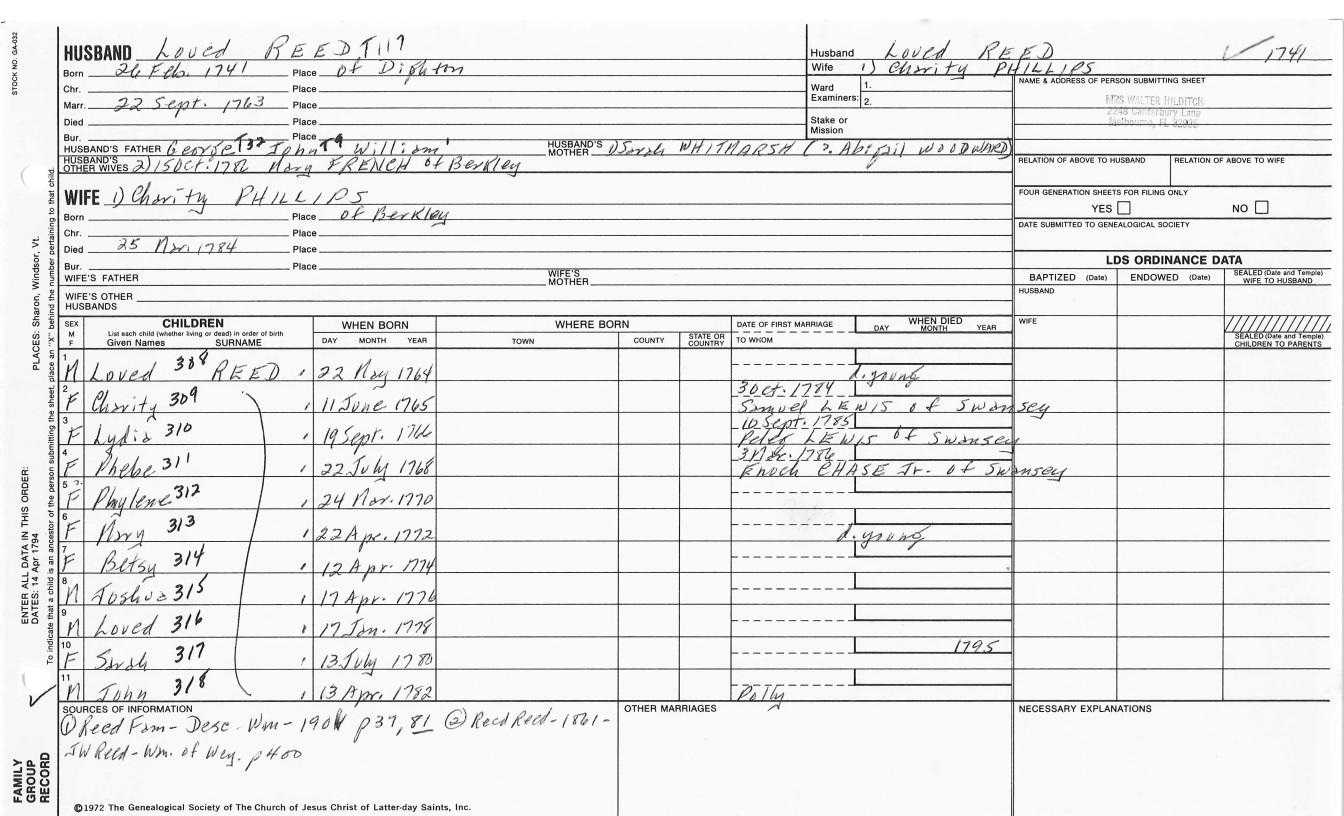 STOCK NO. GA-032
HUSBAND Loved REED T117
Born 26 Feb. 1741 Place of Dighton
Chr. Place
Marr. 22 Sept. 1763 Place
Died Place
Bur. Place
HUSBAND'S FATHER George T32 John T9 William' HUSBAND'S MOTHER 1) Sarah WHITMARSH (2. Abigail WOODWARD)
HUSBAND'S OTHER WIVES 2) 15 Oct. 1786 Mary FRENCH of Berkley
WIFE 1) Charity PHILLIPS
Born Place of Berkley
Chr. Place
Died 25 Mar. 1784 Place
Bur. Place
WIFE'S FATHER WIFE'S MOTHER
WIFE'S OTHER HUSBANDS
Husband Loved REED ✓ 1741
Wife 1) Charity PHILLIPS
Ward Examiners: 1.
2.
Stake or Mission
NAME & ADDRESS OF PERSON SUBMITTING SHEET
MRS WALTER HILDITCH
2248 Canterbury Lane
Melbourne, FL 32935
RELATION OF ABOVE TO HUSBAND RELATION OF ABOVE TO WIFE
FOUR GENERATION SHEETS FOR FILING ONLY
YES NO
DATE SUBMITTED TO GENEALOGICAL SOCIETY
LDS ORDINANCE DATA
BAPTIZED (Date) ENDOWED (Date) SEALED (Date and Temple) WIFE TO HUSBAND
HUSBAND
WIFE
SEALED (Date and Temple) CHILDREN TO PARENTS
SEX M F CHILDREN WHEN BORN WHERE BORN DATE OF FIRST MARRIAGE WHEN DIED
List each child (whether living or dead) in order of birth
Given Names SURNAME DAY MONTH YEAR TOWN COUNTY STATE OR COUNTRY TO WHOM DAY MONTH YEAR
1 M Loved 308 REED 22 May 1764 d. young
2 F Charity 309 11 June 1765 3 Oct. 1784 Samuel LEWIS of Swansey
3 F Lydia 310 19 Sept. 1766 10 Sept. 1785 Peleg LEWIS of Swansey
4 F Phebe 311 22 July 1768 3 Dec. 1786 Enoch CHASE Jr. of Swansey
5 F Phylene 312 24 Mar. 1770
6 F Mary 313 22 Apr. 1772 d. young
7 F Betsy 314 12 Apr. 1774
8 M Joshua 315 17 Apr. 1776
9 M Loved 316 17 Jan. 1778
10 F Sarah 317 13 July 1780 1795
11 M John 318 13 Apr. 1782 Polly
SOURCES OF INFORMATION
① Reed Fam - Desc. Wm - 1901 p 37, 81 ② Recd Reed - 1861 -
JW Reed - Wm. of Wey. p 400
OTHER MARRIAGES
NECESSARY EXPLANATIONS
©1972 The Genealogical Society of The Church of Jesus Christ of Latter-day Saints, Inc.
FAMILY GROUP RECORD
ENTER ALL DATA IN THIS ORDER:
DATES: 14 Apr 1794
PLACES: Sharon, Windsor, Vt.
To indicate that a child is an ancestor of the person submitting the sheet, place an "X" behind the number pertaining to that child.